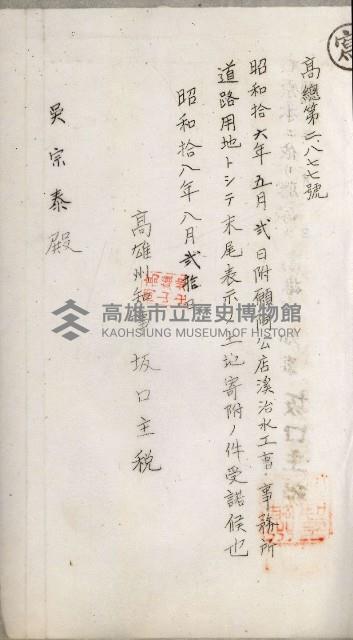 高總第六八七七號
昭和拾六年五月弐日附願阿公店溪治水工事事務所
道路用地トシテ末尾表示ノ土地寄附ノ件受諾候也
昭和拾八年八月弐拾日
高雄州知事 坂口主税
吳宗泰殿
高雄市立歷史博物館
KAOHSIUNG MUSEUM OF HISTORY